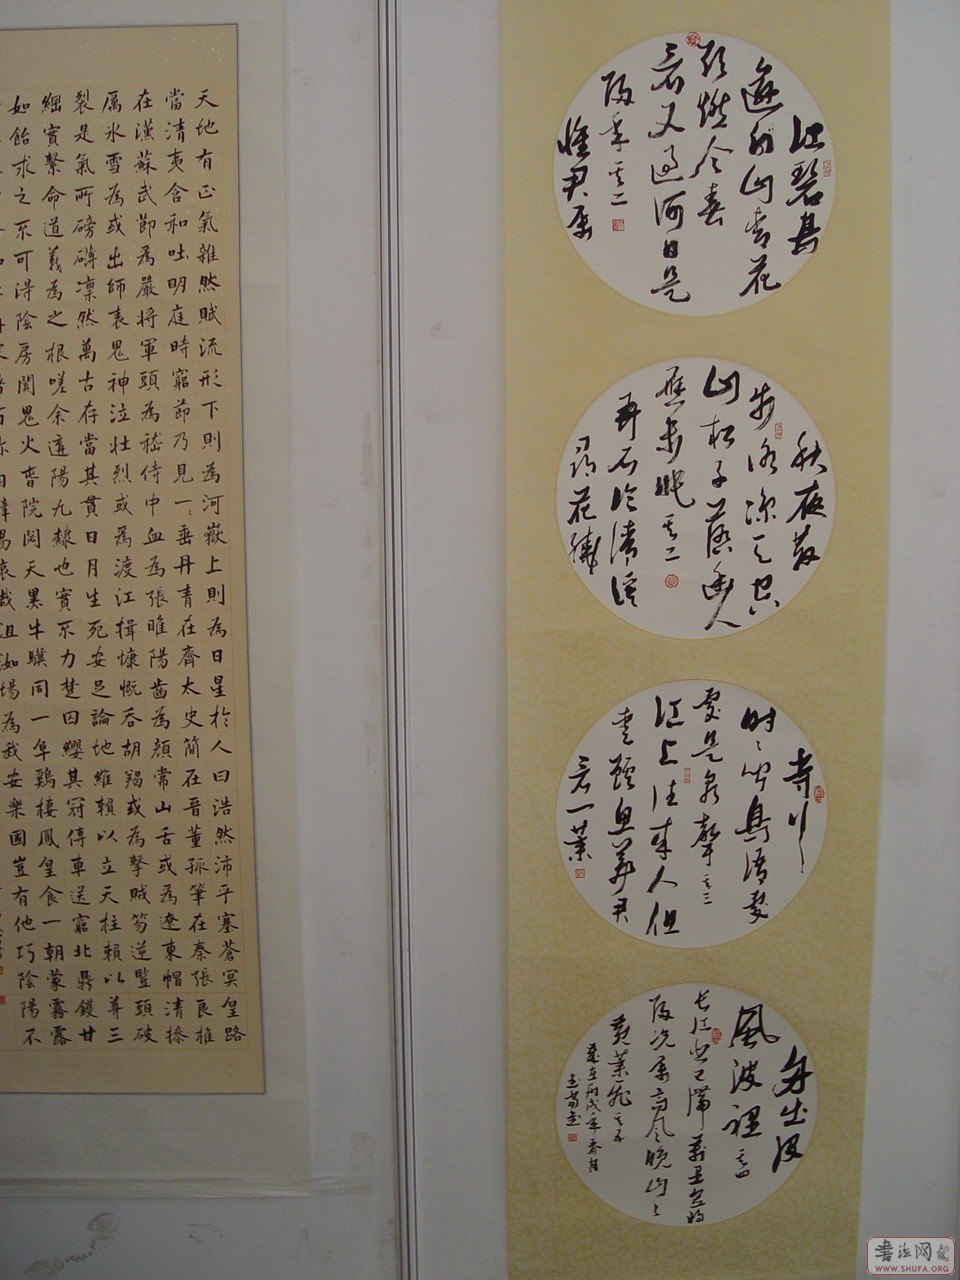 江碧鳥
逾白山青花
欲燃今春
看又過何日是
歸年其二
懷君屬
秋夜散
步詠凉天空
山松子落幽人
應未眠其二
弄石臨清溪
尋花繞
寺行
时時聞鳥語處
處是泉聲其三
江上往來人但
愛鱸魚美君
看一葉
舟出没
風波裡其四
長江悲已滯萬里念將
歸況屬高風晚山山
黃葉飛其五
歲在丙戌年春月
天地有正氣雜然賦流形下則為河嶽上則為日星於人曰浩然沛乎塞蒼冥皇路
當清夷含和吐明庭時窮節乃見一一垂丹青在齊太史簡在晉董狐筆在秦張良椎
在漢蘇武節為嚴將軍頭為嵇侍中血為張睢陽齒為顏常山舌或為遼東帽清操
厲氷雪為或出師表鬼神泣壯烈或為渡江楫慷慨吞胡羯或為擊賊笏逆豎頭破
裂是氣所磅礴凜然萬古存當其貫日月生死安足論地維賴以立天柱賴以尊三
綱實繫命道義為之根嗟余遘陽九隸也實不力楚囚纓其冠傳車送窮北鼎鑊甘
如飴求之不可得陰房闐鬼火春院閟天黑牛驥同一皁鷄棲鳳皇食一朝蒙霧露
自辟易哀哉沮洳場為我安樂國豈有他巧陰陽不
書法网
WWW.SHUFA.ORG